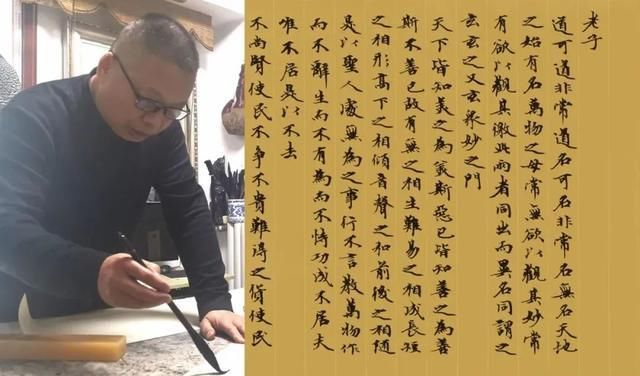 老子
道可道非常道名可名非常名無名天地
之始有名萬物之母常無欲以觀其妙常
有欲以觀其徼此兩者同出而異名同謂之
玄玄之又玄衆妙之門
天下皆知美之為美斯惡已皆知善之為善
斯不善已故有無之相生難易之相成長短
之相形高下之相傾音聲之和前後之相隨
是以聖人處無為之事行不言教萬物作
而不辭生而不有為而不恃功成不居夫
唯不居是以不去
不尚賢使民不争不貴難得之貨使民